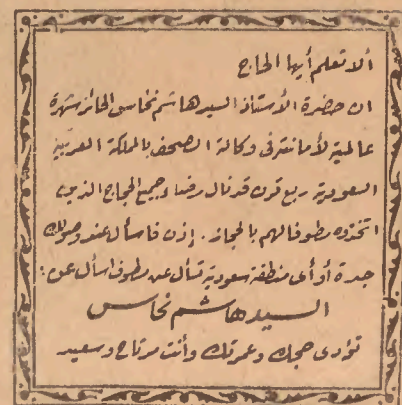 ألا تعلم أيها الحاج
ان حضرة الأستاذ السيد هاشم نحاس الحائز شهرة
عالمية لأمانته في وكالة الصحف بالمملكة العربية
السعودية ربع قرن قد نال رضاء جميع الحجاج الذين
اتخذوه مطوفا لهم بالحجاز. إذن فاسأل عند وصولك
جدة أو أى منطقة سعودية تسأل عن مطوف اسأل عن:
السيد هاشم نحاس
تؤدى حجك وعمرتك وأنت مرتاح وسعيد